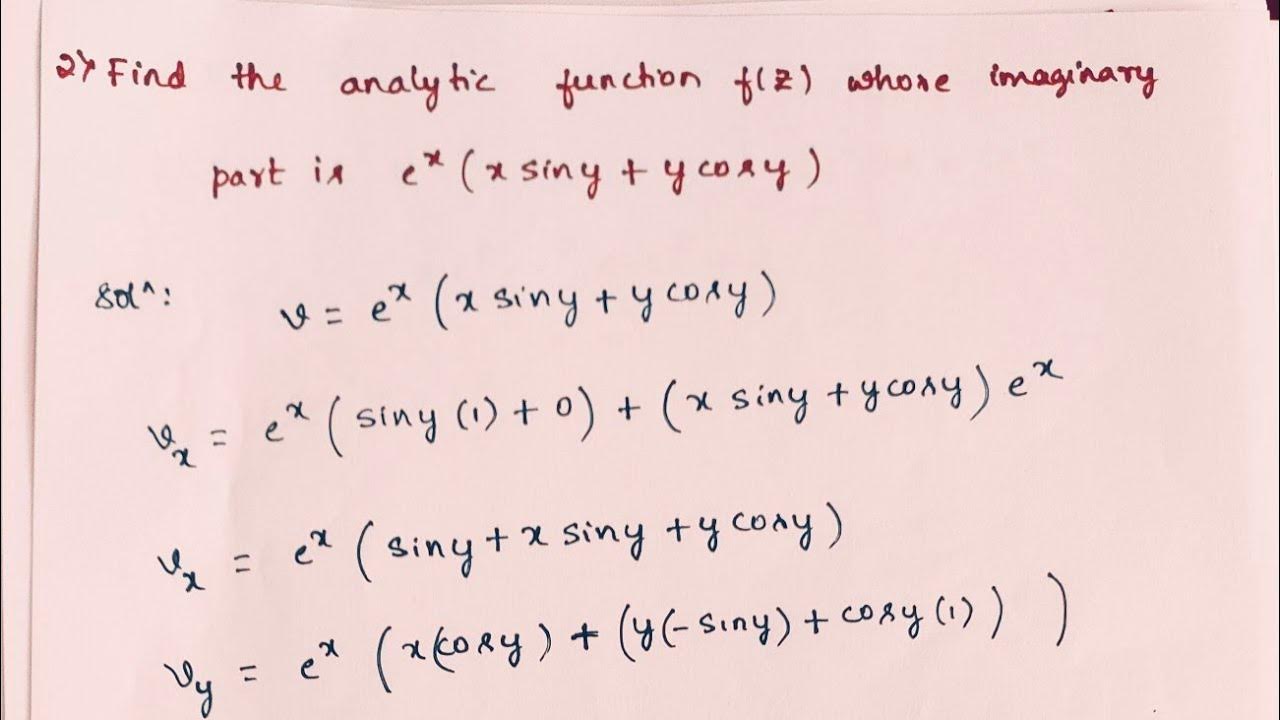 2) Find the analytic function f(z) whose imaginary
part is e^x (x siny + y cosy)
Sol^n:
v = e^x (x siny + y cosy)
v_x = e^x (siny (1) + 0) + (x siny + y cosy) e^x
v_x = e^x (siny + x siny + y cosy)
v_y = e^x (x(cosy) + (y(-siny) + cosy (1)) )